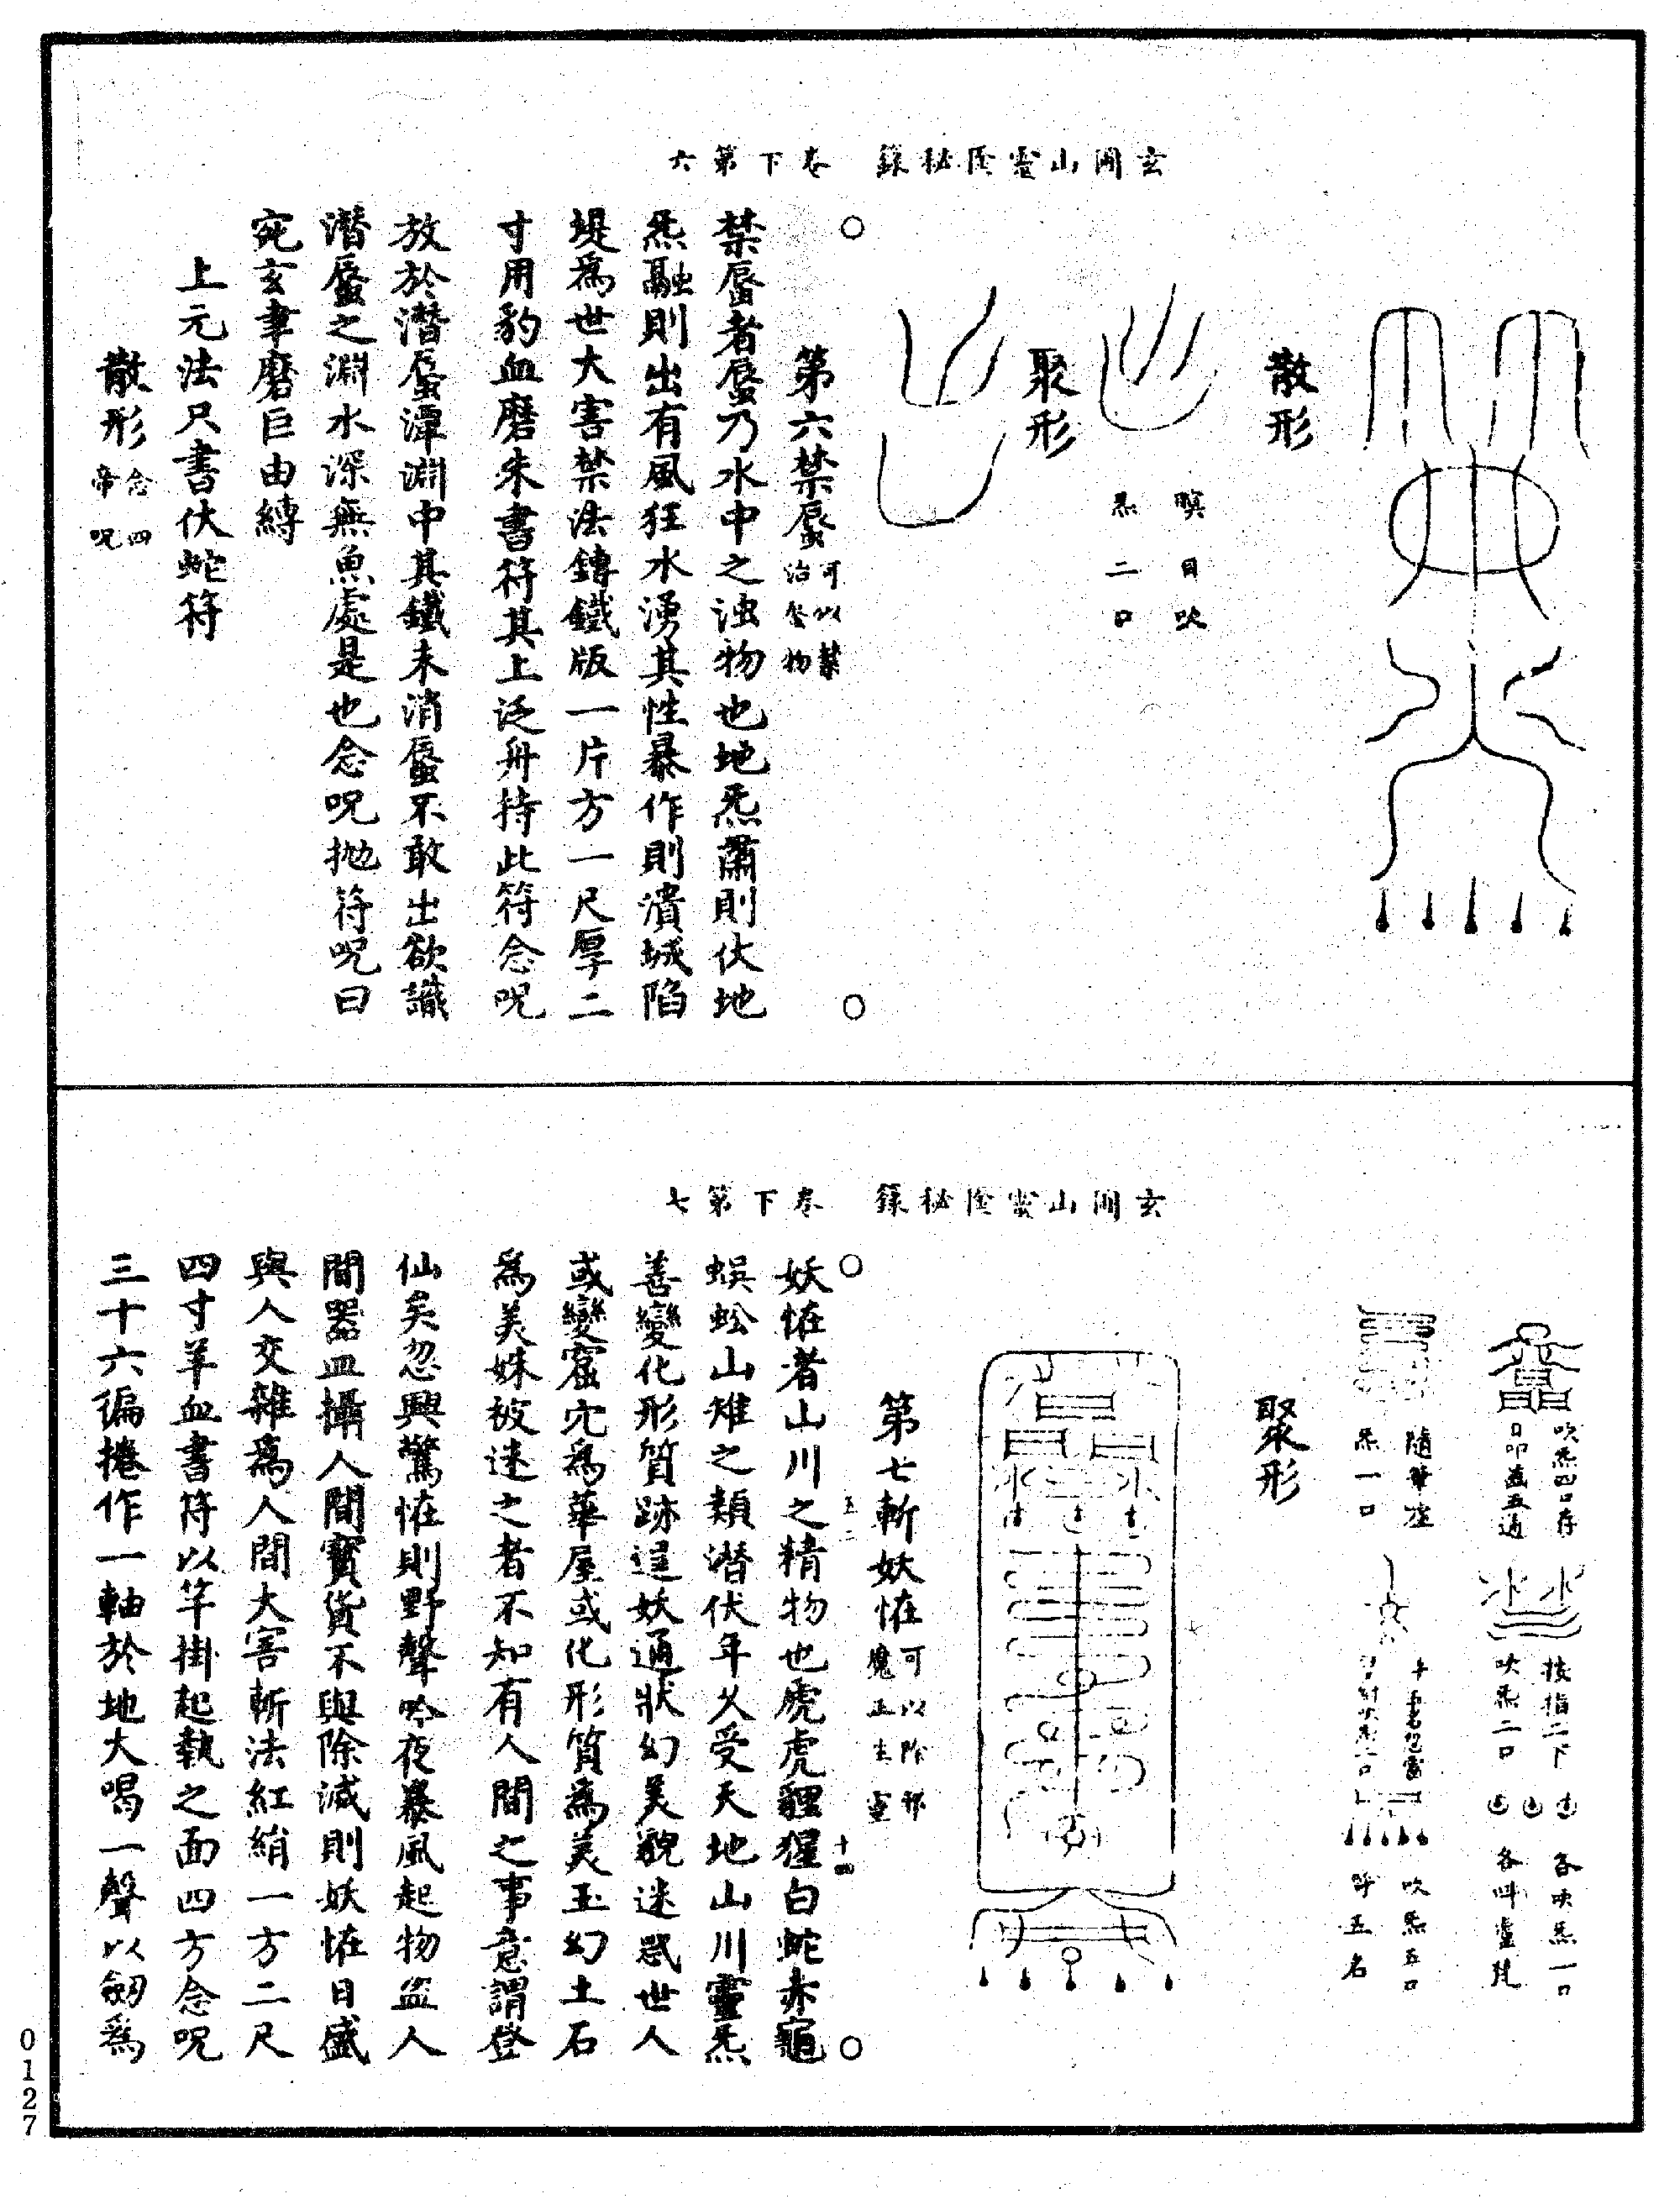 玄關山靈陰秘籙　卷下第六
散形
瞑目吹
炁二口
聚形
第六禁蜃可以禁治水物
禁蜃者蜃乃水中之浊物也地炁肅則伏地
炁融則出有風狂水湧其性暴作則潰城陷
堤為世大害禁法鑄鐵版一片方一尺厚二
寸用豹血磨朱書符其上泛舟持此符念呪
放於潛蜃潭淵中其鐵未消蜃不敢出欲識
潛蜃之淵水深無魚處是也念呪拋符呪曰
宛玄聿磨巨由縛
上元法尺書伏蛇符
散形念四帝呪
玄關山靈陰秘籙　卷下第七
吹炁四口存
口叩齒五通
按指二下
吹炁二口
各吹炁一口
隨筆
炁一口
吹炁五口
呼五名
聚形
第七斬妖恠可以除邪魔正生靈
妖恠者山川之精物也虎貍猩白蛇赤龜
蜈蚣山雉之類潛伏年久受天地山川靈炁
善變化形質跡逞妖通狀幻美貌迷惑世人
或變窟穴為華屋或化形質為美玉幻土石
為美姝被迷之者不知有人間之事意謂登
仙矣忽興驚恠則野聲吟夜暴風起物盜人
間器皿攝人間寶貨不與除滅則妖恠日盛
與人交雜為人間大害斬法紅綃一方二尺
四寸羊血書符以竿掛起執之面四方念呪
三十六徧捲作一軸於地大喝一聲以劒為
五二
十四
0127